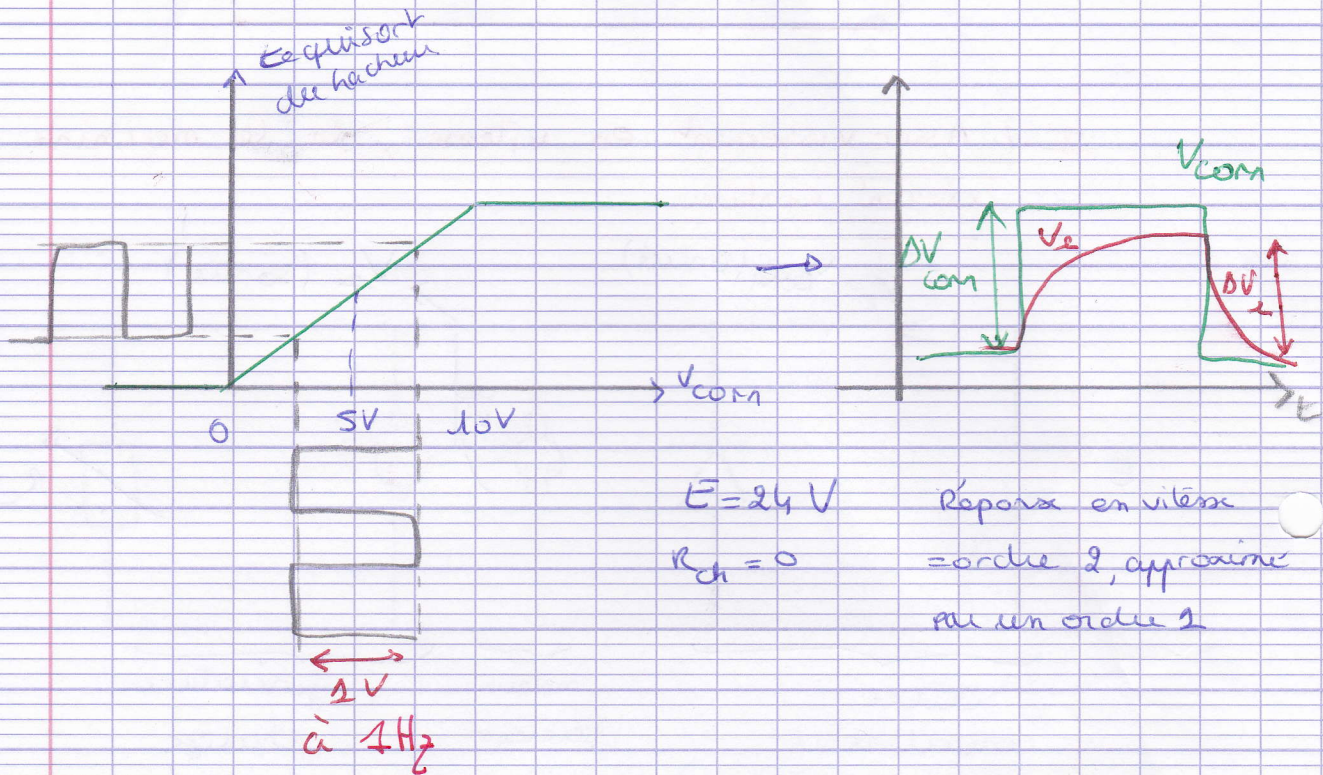 te qui sort
du hacheur
0
5V
10V
Vcom
1V
à 1Hz
Vcom
ΔV
com
Ve
ΔV
e
t
E=24 V
Rch = 0
Réponse en vitesse
=ordre 2, approximé
par un ordre 1